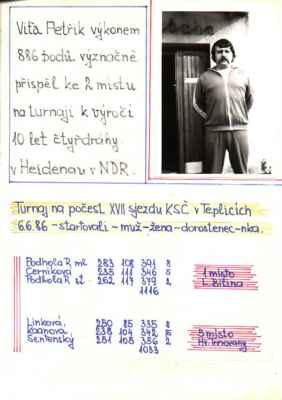 Víťa Petřík výkonem
886 bodů význačně
přispěl ke 2 místu
na turnaji k výročí
10 let čtyřdráhy
v Heidenau v NDR.
Turnaj na počest XVII sjezdu KSČ v Teplicích
6.6.86 - startovali - muž - žena - dorostenec - nka.
Podhola R ml. 283 108 391 8
Černíková 235 111 346 5
Podhola R st. 262 117 379 2
1116
1 místo
L. Bílina
Linková, 250 85 335 8
238 104 342
Šentenský 251 105 356 2
1033
3 místo